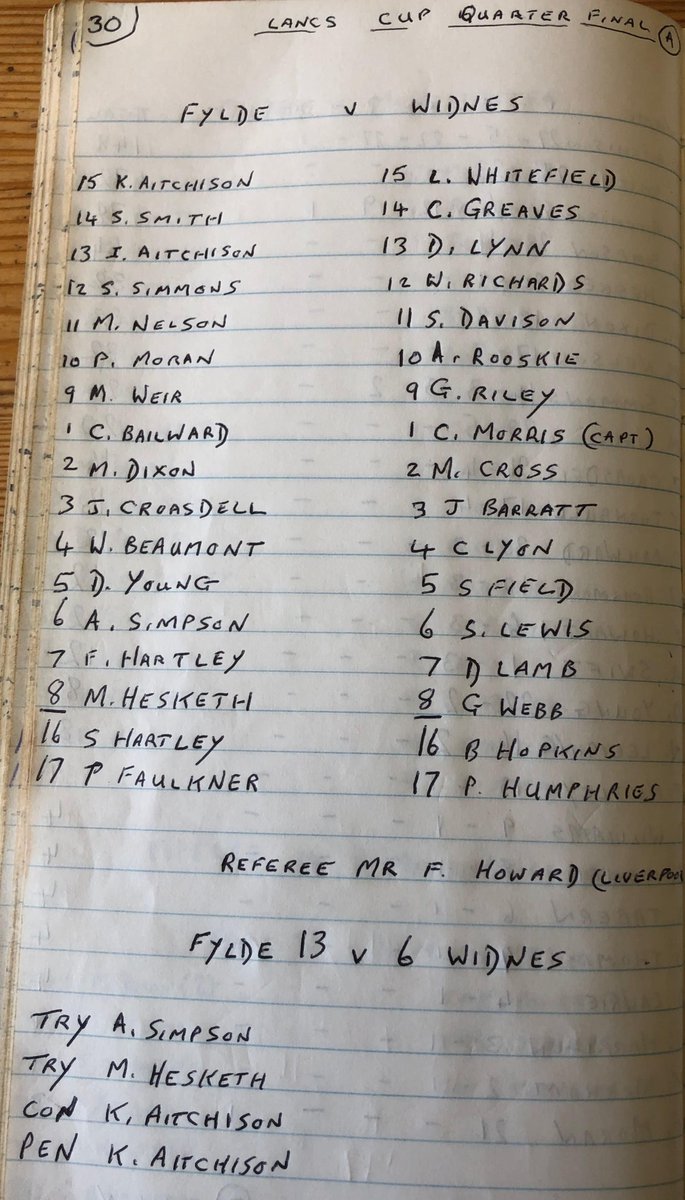 30 LANCS CUP QUARTER FINAL A
FYLDE v WIDNES
15 K. AITCHISON 15 L. WHITEFIELD
14 S. SMITH 14 C. GREAVES
13 I. AITCHISON 13 D. LYNN
12 S. SIMMONS 12 W. RICHARDS
11 M. NELSON 11 S. DAVISON
10 P. MORAN 10 A. ROOSKIE
9 M. WEIR 9 G. RILEY
1 C. BAILWARD 1 C. MORRIS (CAPT)
2 M. DIXON 2 M. CROSS
3 J. CROASDELL 3 J BARRATT
4 W. BEAUMONT 4 C LYON
5 D. YOUNG 5 S FIELD
6 A. SIMPSON 6 S. LEWIS
7 F. HARTLEY 7 D LAMB
8 M. HESKETH 8 G WEBB
16 S HARTLEY 16 B HOPKINS
17 P FAULKNER 17 P. HUMPHRIES
REFEREE MR F. HOWARD (LIVERPOOL
FYLDE 13 v 6 WIDNES
TRY A. SIMPSON
TRY M. HESKETH
CON K. AITCHISON
PEN K. AITCHISON